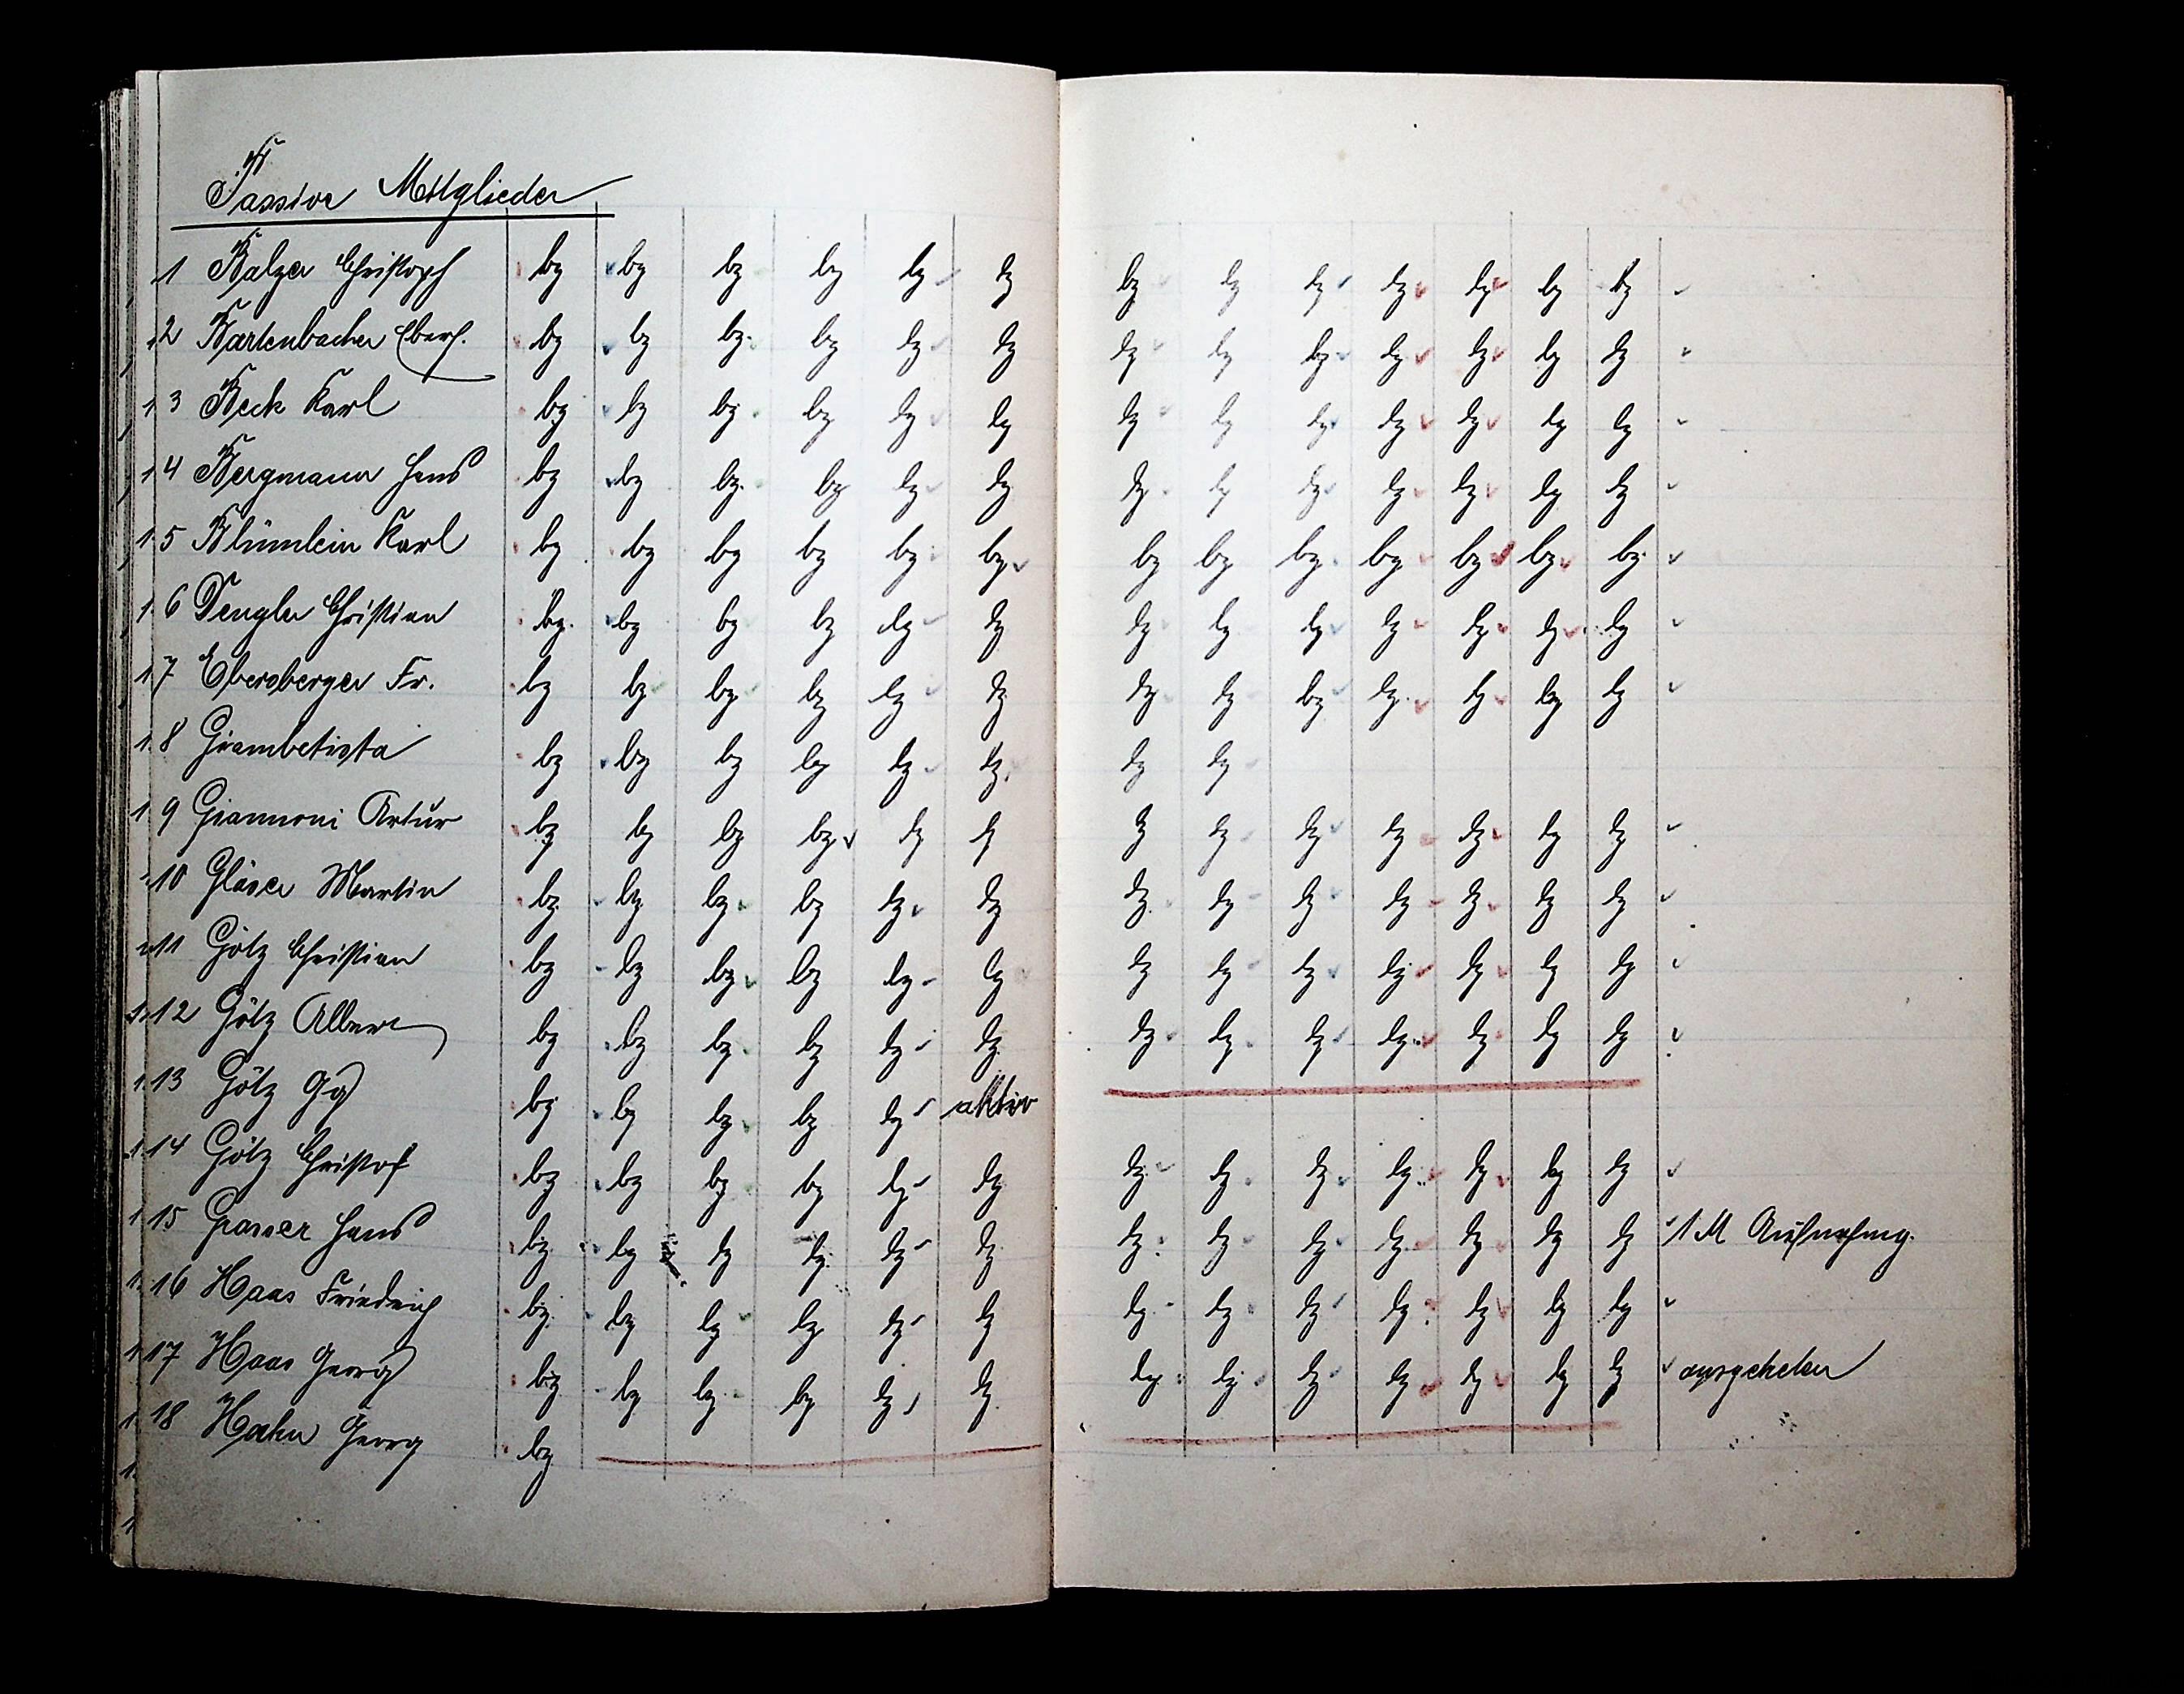 Passive Mitglieder
1 Balzer Christoph bz bz bz bz bz bz bz bz bz bz bz bz bz
2 Bartenbacher Eberh. bz bz bz bz bz bz bz bz bz bz bz bz bz
3 Beck Karl bz bz bz bz bz bz bz bz bz bz bz bz bz
4 Bergmann Hans bz bz bz bz bz bz bz bz bz bz bz bz bz
5 Blümlein Karl bz bz bz bz bz bz bz bz bz bz bz bz bz
6 Dengler Christian bz bz bz bz bz bz bz bz bz bz bz bz bz
7 Ebersberger Fr. bz bz bz bz bz bz bz bz bz bz bz bz bz
8 Giambetista bz bz bz bz bz bz bz bz
9 Giannoni Artur bz bz bz bz bz bz bz bz bz bz bz bz bz
10 Gläser Martin bz bz bz bz bz bz bz bz bz bz bz bz bz
11 Götz Christian bz bz bz bz bz bz bz bz bz bz bz bz bz
12 Götz bz bz bz bz bz bz bz bz bz bz bz bz bz
13 Götz Gg bz bz bz bz bz aktiv
14 Götz Christof bz bz bz bz bz bz bz bz bz bz bz bz bz
15 Grasser Hans bz bz bz bz bz bz bz bz bz bz bz bz bz 1 M Aufnahmg.
16 Haas Friedrich bz bz bz bz bz bz bz bz bz bz bz bz bz
17 Haas Georg bz bz bz bz bz bz bz bz bz bz bz bz bz ausgetreten
18 Hahn Georg bz